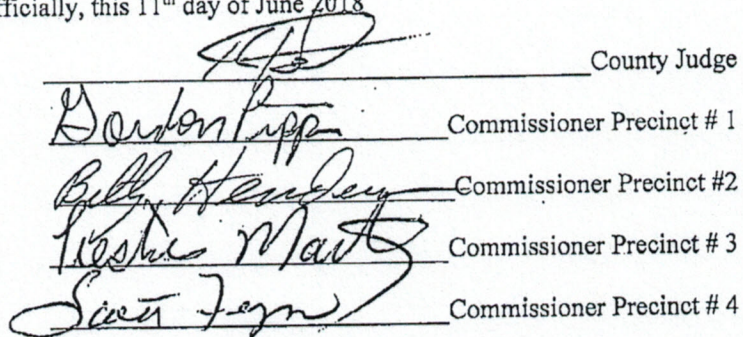 fficially, this 11th day of June 2018
County Judge
Gordon Pipp Commissioner Precinct # 1
Billy Commissioner Precinct #2
Commissioner Precinct # 3
Scott Commissioner Precinct # 4